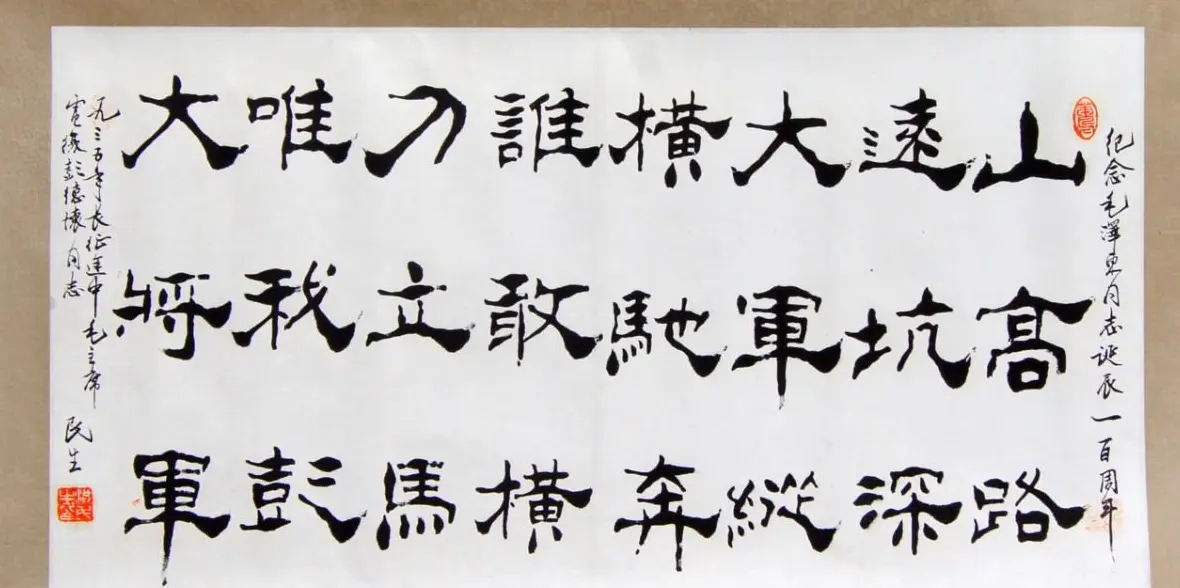 纪念毛澤東同志诞辰一百周年
山高路
遠坑深
大軍縱
橫馳奔
誰敢橫
刀立馬
唯我彭
大將軍
一九三五年长征途中毛主席
電彭德懷同志
民生